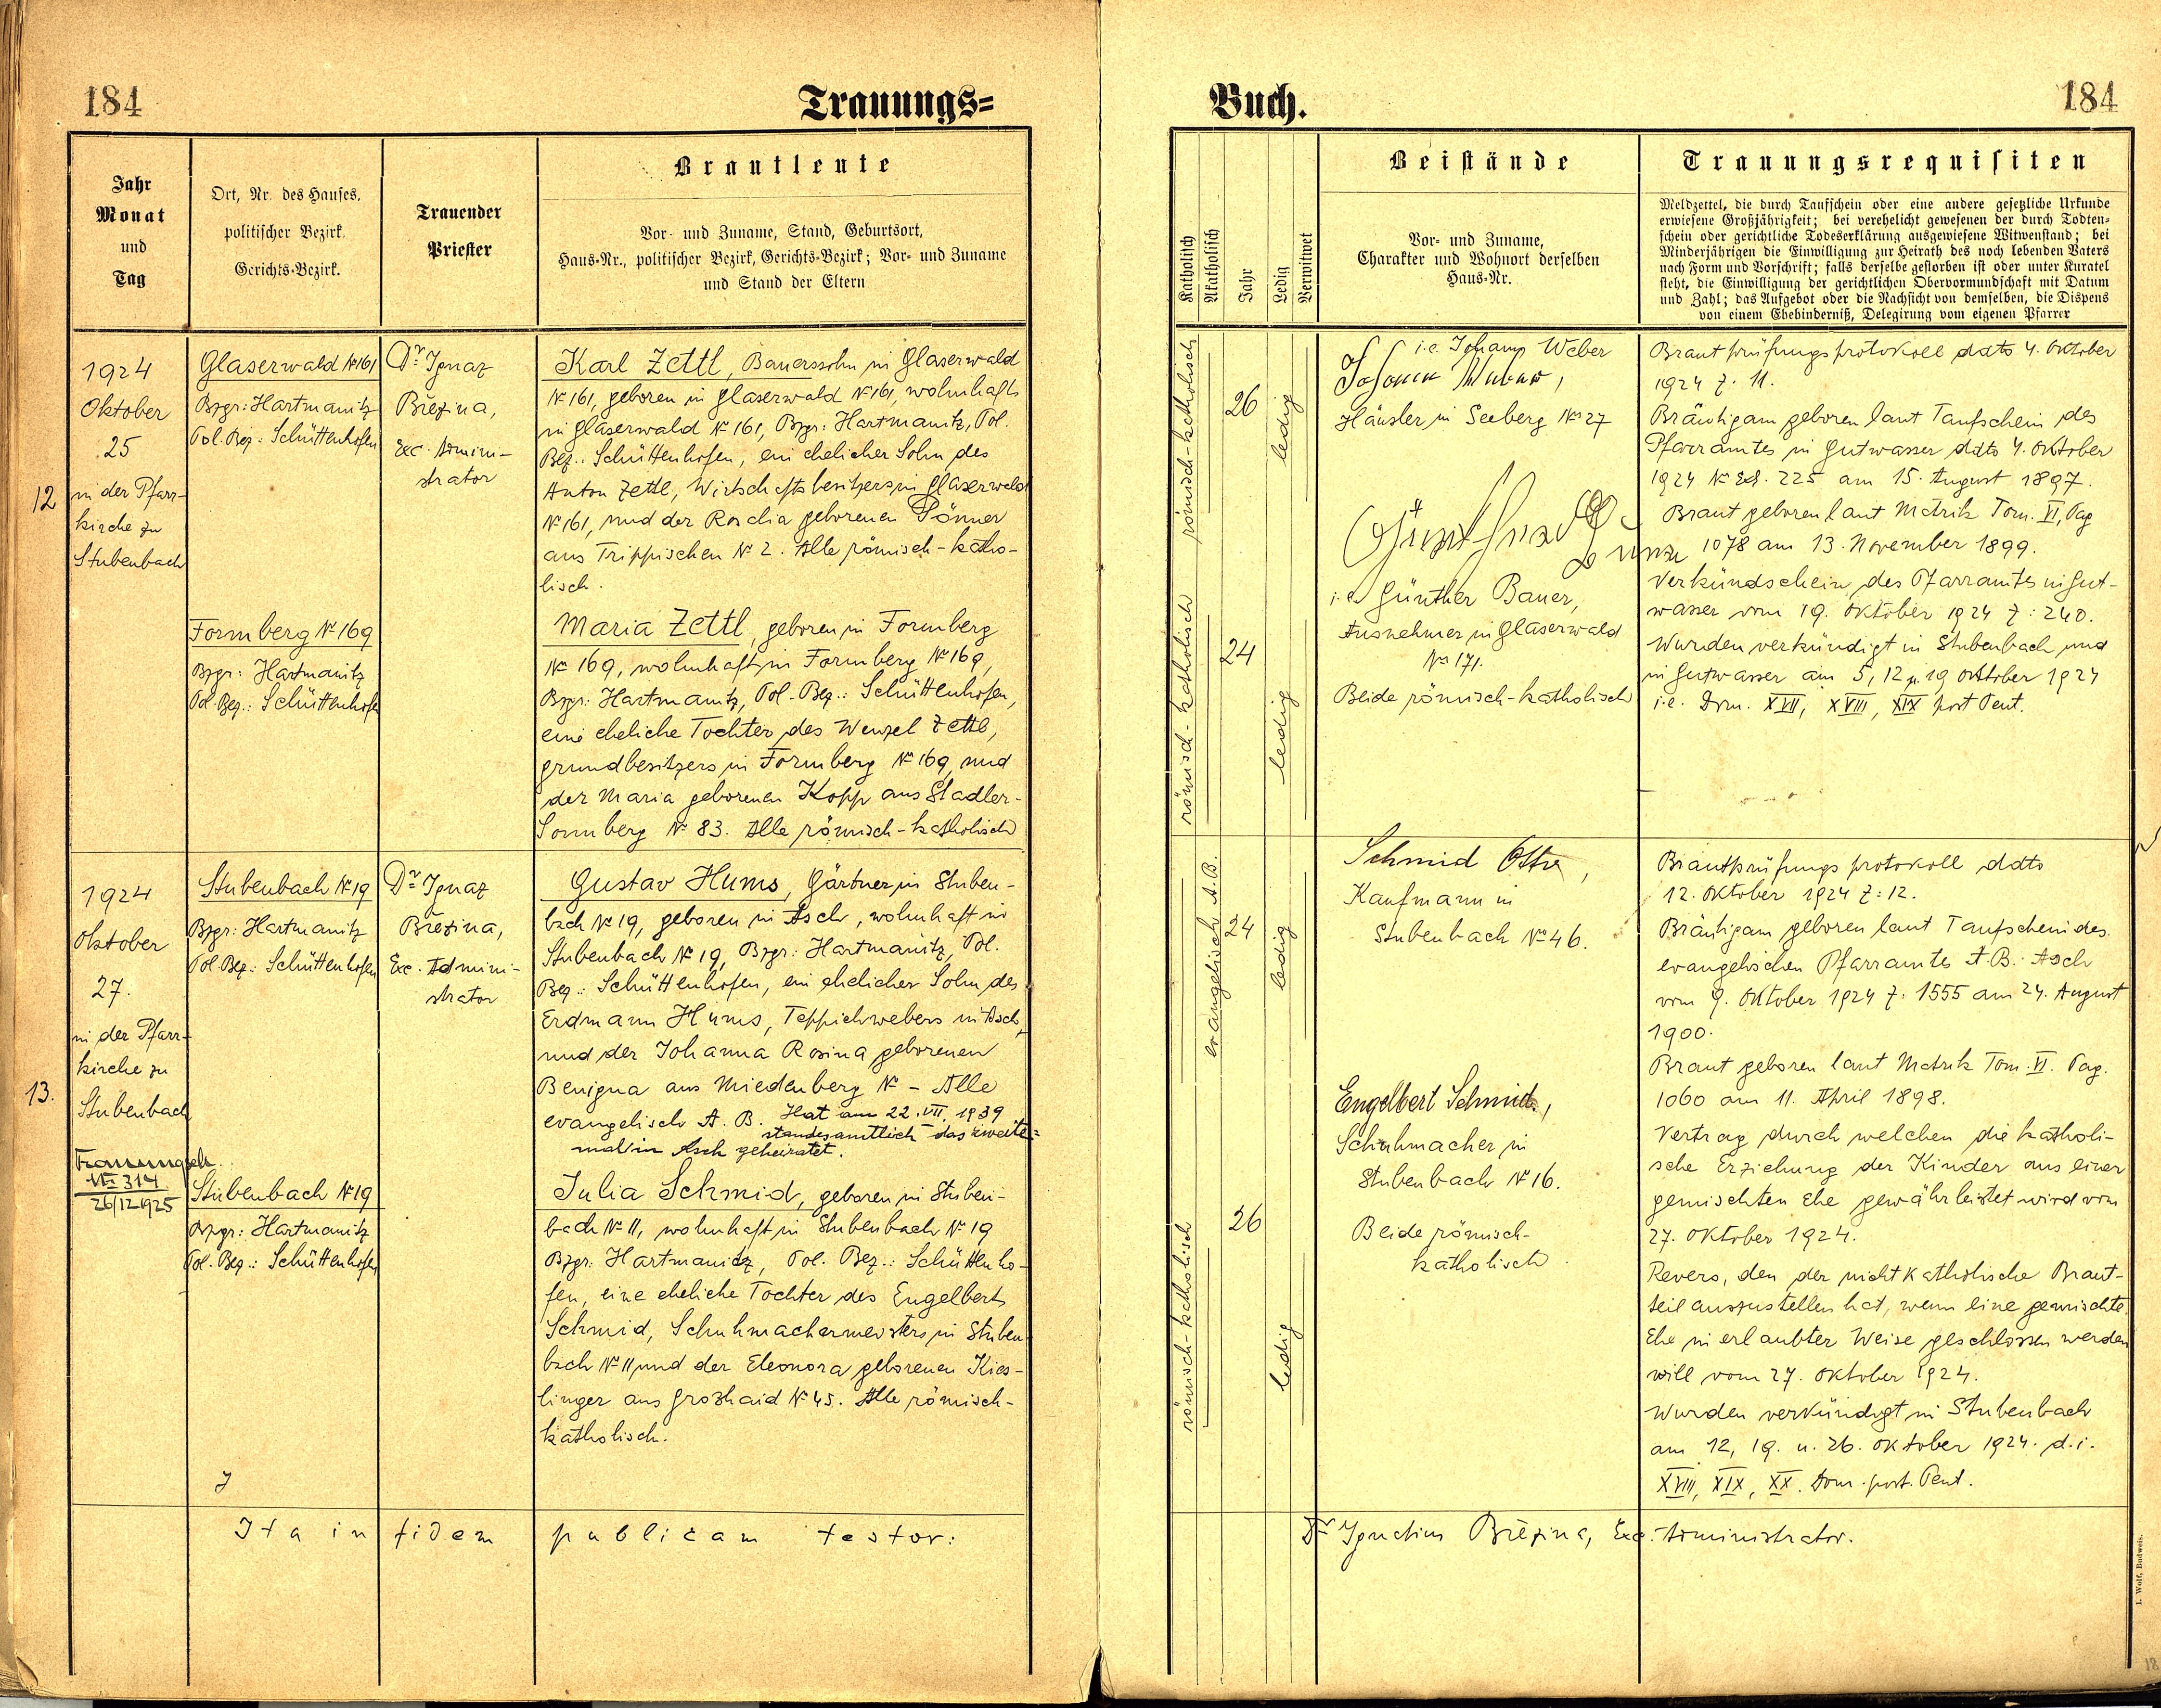 184
Trauungs=
Jahr
Monat
und
Tag
Ort, Nr. des Hauses,
politischer Bezirk,
Gerichts-Bezirk.
Trauender
Priester
Brautleute
Vor- und Zuname, Stand, Geburtsort,
Haus-Nr., politischer Bezirk, Gerichts-Bezirk; Vor- und Zuname
und Stand der Eltern
12
1924
Oktober
25
in der Pfarr-
kirche zu
Stubenbach
Glaserwald № 161
Bzgr: Hartmanitz
Pol. Bez: Schüttenhofen
Dr Ignaz
Březina,
Exc. Admini-
strator
Karl Zettl, Bauerssohn in Glaserwald
№ 161, geboren in Glaserwald № 161, wohnhaft
in Glaserwald № 161, Bzgr: Hartmanitz, Pol.
Bez.: Schüttenhofen, ein ehelicher Sohn des
Anton Zettl, Wirtschaftsbesitzers in Glaserwald
№ 161, und der Rosalia geborenen Pönner
aus Trippischen № 2. Alle römisch-katho-
lisch.
Formberg № 169
Bzgr: Hartmanitz
Pol. Bez.: Schüttenhofe
Maria Zettl, geboren in Formberg
№ 169, wohnhaft in Formberg № 169,
Bzgr: Hartmanitz, Pol-Bez.: Schüttenhofen,
eine eheliche Tochter des Wenzel Zettl,
Grundbesitzers in Formberg № 169, und
der Maria geborenen Kopp aus Stadler-
Sonnberg № 83. Alle römisch-katholisch
13.
1924
Oktober
27.
in der Pfarr-
kirche zu
Stubenbach
Trauungsch.
№ 314
26/12 1925
Stubenbach № 19
Bzgr: Hartmanitz
Pol. Bez: Schüttenhofen
Dr Ignaz
Březina,
Exc. Admini-
strator
Gustav Hums, Gärtner in Stuben-
bach № 19, geboren in Asch, wohnhaft in
Stubenbach № 19, Bzgr: Hartmanitz, Pol.
Bez.: Schüttenhofen, ein ehelicher Sohn des
Erdmann Hums, Teppichwebers in Asch,
und der Johanna Rosina geborenen
Benigna aus Niedenberg № - Alle
evangelisch A. B. Hat am 22. VII. 1939
standesamtlich das zweite=
mal in Asch geheiratet.
Stubenbach № 19
Bzgr: Hartmanitz
Pol. Bez.: Schüttenhofen
Julia Schmid, geboren in Stuben-
bach № 11, wohnhaft in Stubenbach № 19
Bzgr: Hartmanitz, Pol. Bez.: Schüttenho-
fen, eine eheliche Tochter des Engelbert
Schmid, Schuhmachermeisters in Stuben
bach № 11 und der Eleonora geborenen Kies-
linger aus Großhaid № 45. Alle römisch-
katholisch.
Ita in fidem publicam testor:
Buch.
184
Katholisch
Akatholisch
Jahr
Ledig
Verwitwet
Beistände
Vor- und Zuname,
Charakter und Wohnort derselben
Haus-Nr.
Trauungsrequisiten
Meldzettel, die durch Taufschein oder eine andere gesetzliche Urkunde
erwiesene Großjährigkeit; bei verehelicht gewesenen der durch Todten-
schein oder gerichtliche Todeserklärung ausgewiesene Witwenstand; bei
Minderjährigen die Einwilligung zur Heirath des noch lebenden Vaters
nach Form und Vorschrift; falls derselbe gestorben ist oder unter Kuratel
steht, die Einwilligung der gerichtlichen Obervormundschaft mit Datum
und Zahl; das Aufgebot oder die Nachsicht von demselben, die Dispens
von einem Ehehinderniß, Delegirung vom eigenen Pfarrer
römisch-katholisch
26
ledig
i.e. Johann Weber
Johann Weber,
Häusler in Seeberg № 27
Günther
i.e. Günther Bauer,
Ausnehmer in Glaserwald
№ 171.
Beide römisch-katholisch
römisch-katholisch
24
ledig
Brautprüfungsprotokoll ddto 4. Oktober
1924 Z. 11.
Bräutigam geboren laut Taufschein des
Pfarramtes in Gutwasser ddto 4. Oktober
1924 № Ed. 225 am 15. August 1897.
Braut geboren laut Matrik Tom. VI, Pag
1078 am 13. November 1899.
Verkündschein des Pfarramtes in Gut-
wasser vom 19. Oktober 1924 Z: 240.
Wurden verkündigt in Stubenbach und
in Gutwasser am 5, 12 u. 19 Oktober 1924
i.e. Dom. XVII, XVIII, XIX post Pent.
evangelisch A. B.
24
ledig
Schmid Otto,
Kaufmann in
Stubenbach № 46.
Engelbert Schmid,
Schuhmacher in
Stubenbach № 16.
Beide römisch-
katholisch
römisch-katholisch
26
ledig
Brautprüfungsprotokoll ddto
12. Oktober 1924 Z: 12.
Bräutigam geboren laut Taufschein des
evangelischen Pfarramtes A. B. Asch
vom 9. Oktober 1924 Z: 1555 am 24. August
1900.
Braut geboren laut Matrik Tom. VI. Pag.
1060 am 11. April 1898.
Vertrag durch welchen die katholi-
sche Erziehung der Kinder aus einer
gemischten Ehe gewährleistet wird vom
27. Oktober 1924.
Revers, den der nichtkatholische Braut-
teil auszustellen hat, wenn eine gemischte
Ehe in erlaubter Weise geschlossen werden
will vom 27. Oktober 1924.
Wurden verkündigt in Stubenbach
am 12, 19. u. 26. Oktober 1924. d.i.
XVIII, XIX, XX. Dom. post. Pent.
Dr Ignatius Březina, Exc. Administrator.
I. Wolf, Budweis.